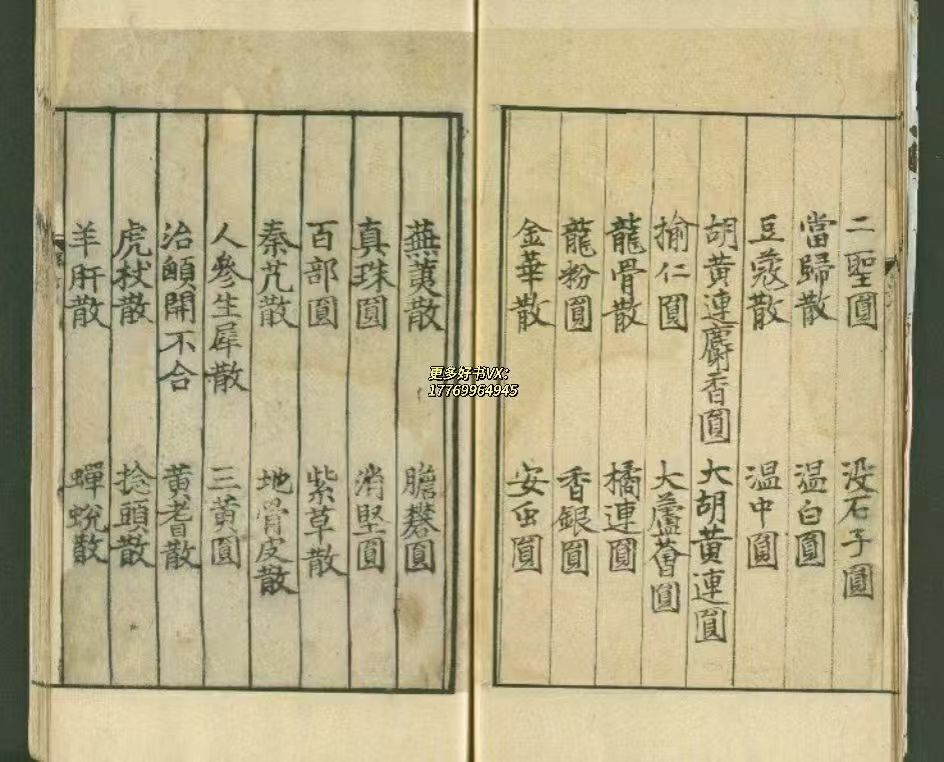 二聖圓
没石子圓
當歸散
温白圓
豆蔻散
温中圓
胡黄連麝香圓
大胡黄連圓
榆仁圓
大蘆薈圓
龍骨散
橘連圓
龍粉圓
香銀圓
金華散
安虫圓
蕪荑散
膽礬圓
真珠圓
消堅圓
百部圓
紫草散
秦艽散
地骨皮散
人參生犀散
三黄圓
治顖開不合
黄耆散
虎杖散
捻頭散
羊肝散
蟬蛻散
更多好书VX:
17769964945